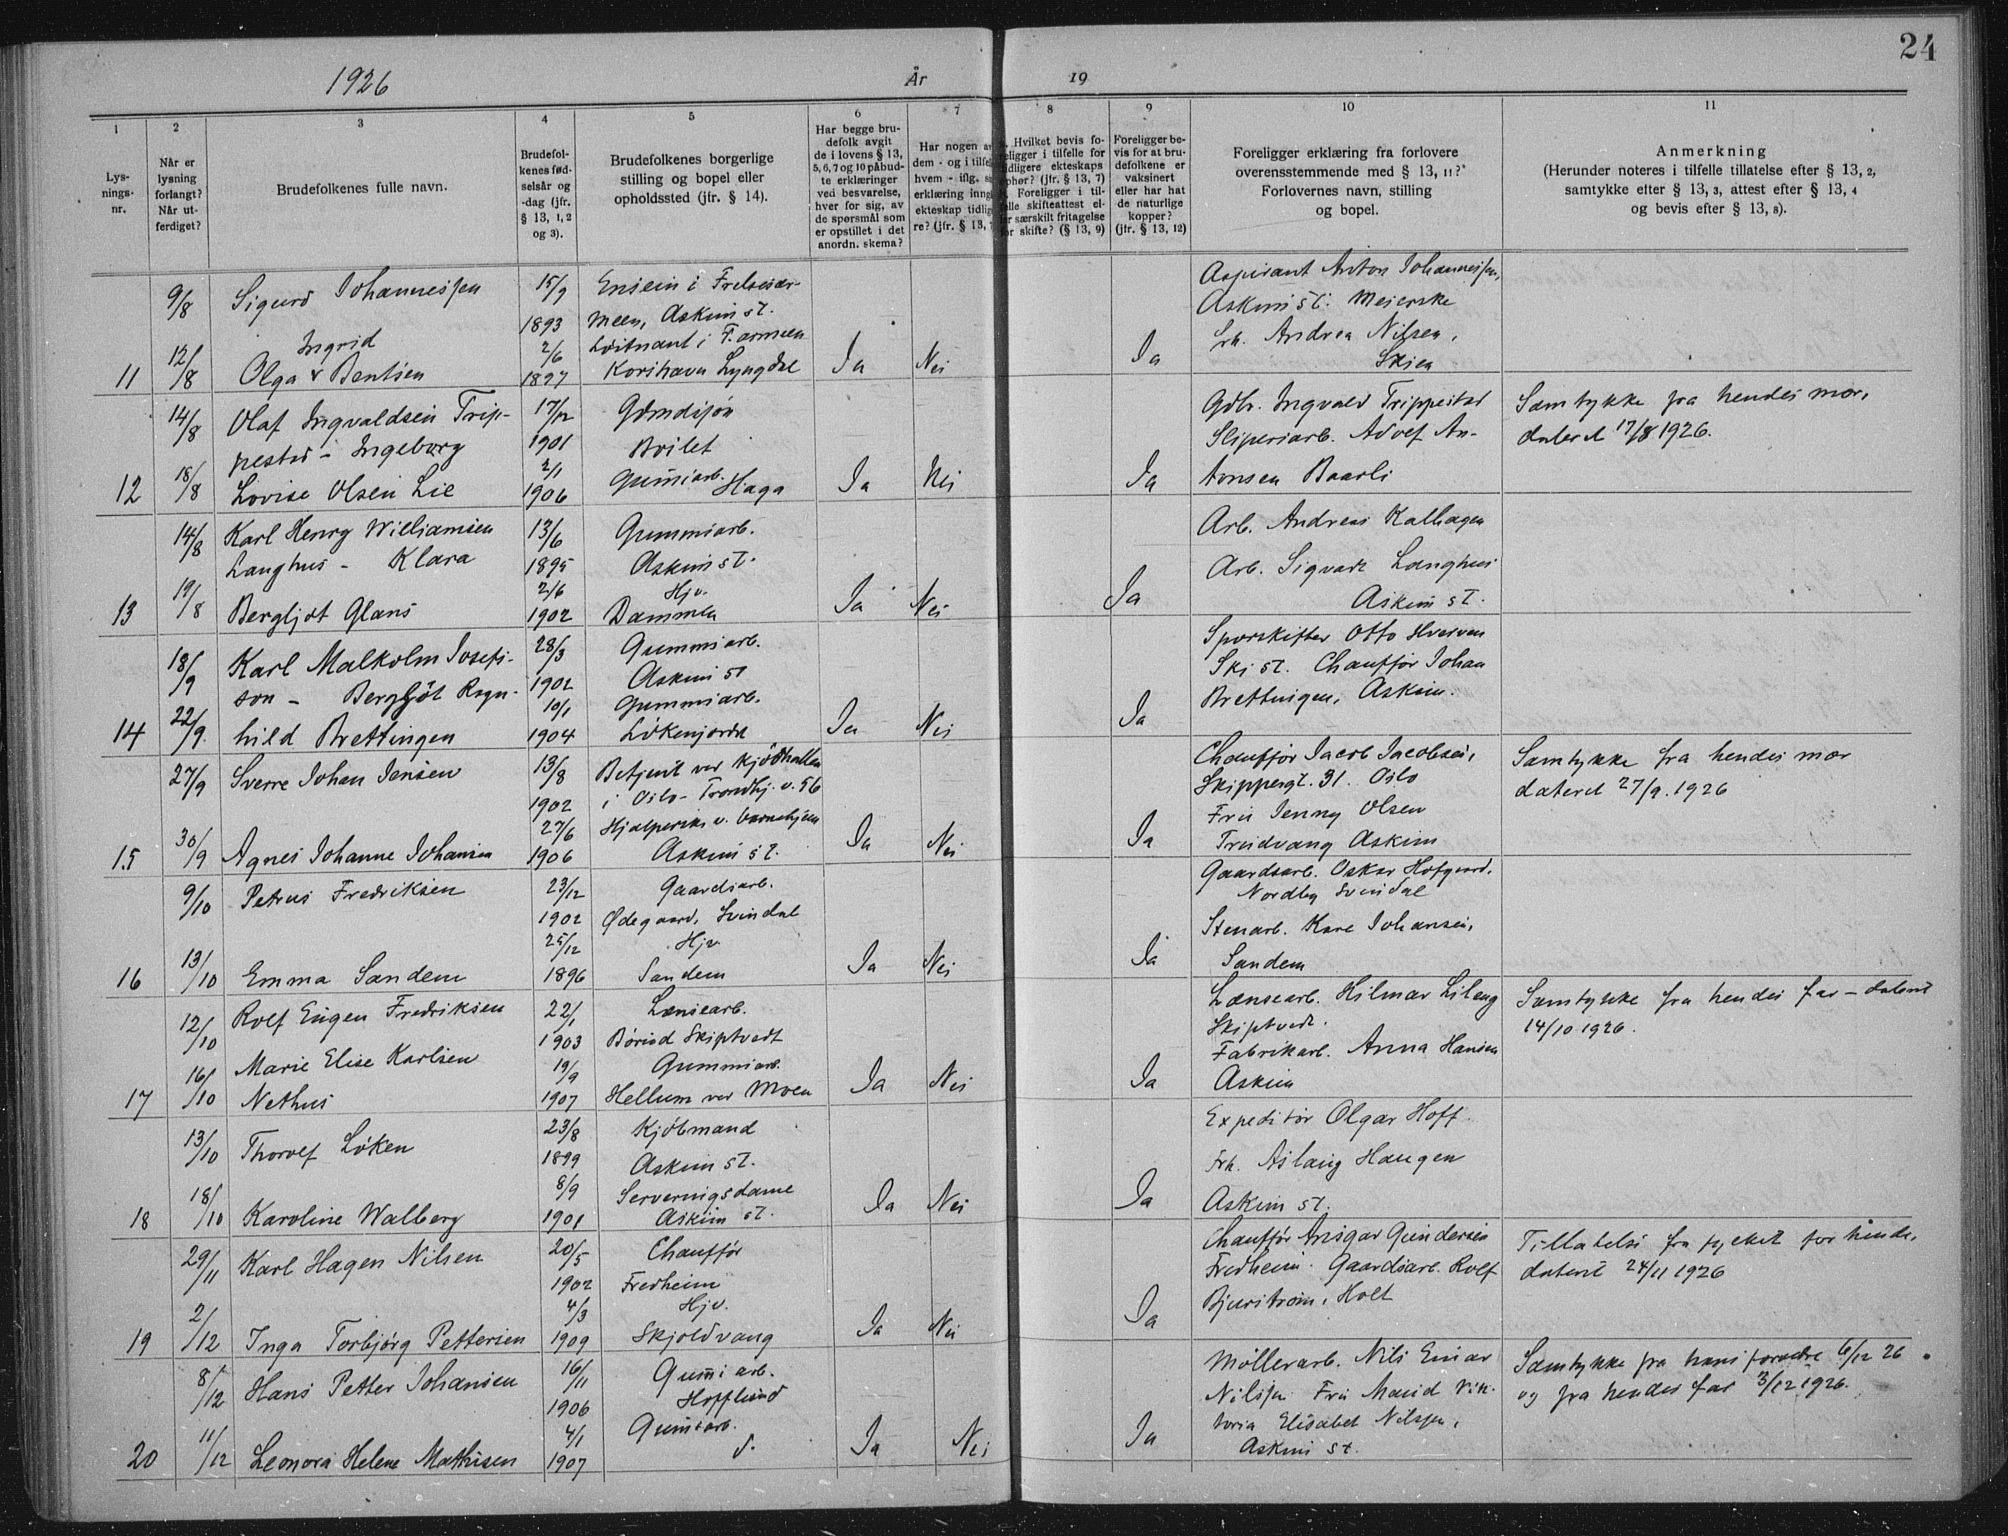 24
1926
År
19
1
2
3
4
5
6
7
8
9
10
11
Lys-
nings-
nr.
Når er
lysning
forlangt?
Når ut-
ferdiget?
Brudefolkenes fulle navn.
Brudefol-
kenes fød-
selsår og
-dag (jfr.
§ 13, 1, 2
og 3).
Brudefolkenes borgerlige
stilling og bopel eller
opholdssted (jfr. § 14).
Har begge bru-
defolk avgit
de i lovens § 13,
5, 6, 7 og 10 påbud-
te erklæringer
ved besvarelse,
hver for sig, av
de spørsmål som
er opstillet i det
anordn. skema?
Har nogen av
dem - og i tilfel
hvem - iflg.
erklæring inng
ekteskap tidlig
re? (jfr. § 13,
Hvilket bevis fo-
religger i tilfelle for
tidligere ekteskaps
ophør? (jfr. § 13, 7)
Foreligger i til-
felle skifteattest el-
er særskilt fritagelse
for skifte? (§ 13, 9)
Foreligger be-
vis for at bru-
defolkene er
vaksinert
eller har hat
de naturlige
kopper?
(jfr. § 13, 12)
Foreligger erklæring fra forlovere
overensstemmende med § 13, 11?
Forlovernes navn, stilling
og bopel.
Anmerkning
(Herunder noteres i tilfelle tillatelse efter § 13, 2,
samtykke efter § 13, 3, attest efter § 13, 4
og bevis efter § 13, 8).
11
9/8
12/8
Sigurd Johannessen
Ingrid
Olga v Bentsen
15/9
1893
2/6
1897
Ensein i Frelsesar-
meen, Askim st.
Løitnant i F. armeen
Korshavn Lyngdal
Ja
Nei
Ja
Aspirant Anton Johannessen,
Askim st. Meierske
Frk. Andrea Nilsen,
Skien
12
14/8
18/8
Olaf Ingvaldsen Trip-
pestad - Ingeborg
Lovise Olsen Lie
17/12
1901
2/1
1906
Gdmdisjøn
Brilet
Gumiarb.
Haga
Ja
Nei
Ja
Gdbr. Ingvald Trippestad
Sliperiarb. Adolf An-
tonsen Baarli
Samtykke fra hendes mor,
dateret 17/8 1926.
13
14/8
19/8
Karl Henry Williamsen
Langhus - Klara
Bergljot Glans
13/6
1895
2/6
1902
Gummiarb.
Askim st.
Hjv.
Dammen
Ja
Nei
Ja
Arb. Andreas Kalhagen
Arb. Sigvart Langhus
Askim st.
14
18/9
22/9
Karl Malkolm Josefs-
son - Bergljot Ragn-
hild Brettingen
28/3
1902
10/1
1904
Gummiarb.
Askim st
Gummiarb.
Løkenjordet
Ja
Nei
Ja
Sporskifter Otto Hverven
Ski st. Chauffør Johan
Brettingen, Askim.
15
27/9
30/9
Sverre Johan Jensen
Agnes Johanne Johansen
13/8
1902
27/6
1906
Betjent ved Kjødhallen
i Oslo - Trondhj. v. 56
Hjælperske v. barnehjem
Askim st.
Ja
Nei
Ja
Chauffør Jacob Jacobsen,
Skippergt. 31. Oslo
Fru Jenny Olsen
Trudvang Askim
Samtykke fra hendes mor
dateret 27/9. 1926
16
9/10
13/10
Petrus Fredriksen
Emma Sandem
23/12
1902
25/12
1896
Gaardsarb.
Ødegaard, Svindal
Hjv.
Sandem
Ja
Nei
Ja
Gaardsarb. Oskar Hofgaard.
Nordby Svindal
Stenarb. Kare Johansen,
Sandem
17
12/10
16/10
Rolf Eugen Fredriksen
Marie Elise Karlsen
Nethus
22/1
1903
19/9
1907
Lænsearb.
Børsed Skiptvedt
Gummiarb.
Hellum ved Moen
Ja
Nei
Ja
Lænsearb. Hilmar Lileng
Skiptvedt.
Fabrikarb. Anna Hansen
Askim
Samtykke fra hendes far - dateret
14/10 1926.
18
13/10
18/10
Thorolf Løken
Karoline Walberg
23/8
1899
8/9
1901
Kjøbmand
Askim st.
Serveringsdame
Askim st.
Ja
Nei
Ja
Expeditør Olgar Hoff.
Frk. Aslaug Haugen
Askim st.
19
29/11
2/12
Karl Hagen Nilsen
Inga Torbjørg Pettersen
20/5
1902
4/3
1909
Chauffør
Fredheim
Hjv.
Skjoldvang
Ja
Nei
Ja
Chauffør Ansgar Gundersen
Fredheim. Gaardsarb. Rolf
Bjurstrøm, Holt
Tillatelse fra fylket for hende,
dateret 24/11 1926
20
8/12
11/12
Hans Petter Johansen
Leonora Helene Mathisen
16/11
1906
4/1
1907
Gumiarb.
Hofflund
Gumiarb.
d.
Ja
Nei
Ja
Møllerarb. Nils Einar
Nilssen Fru Maud Vik-
toria Elisabet Nilssen,
Askim st.
Samtykke fra hans forældre 6/12 26
og fra hendes far 3/12 1926.